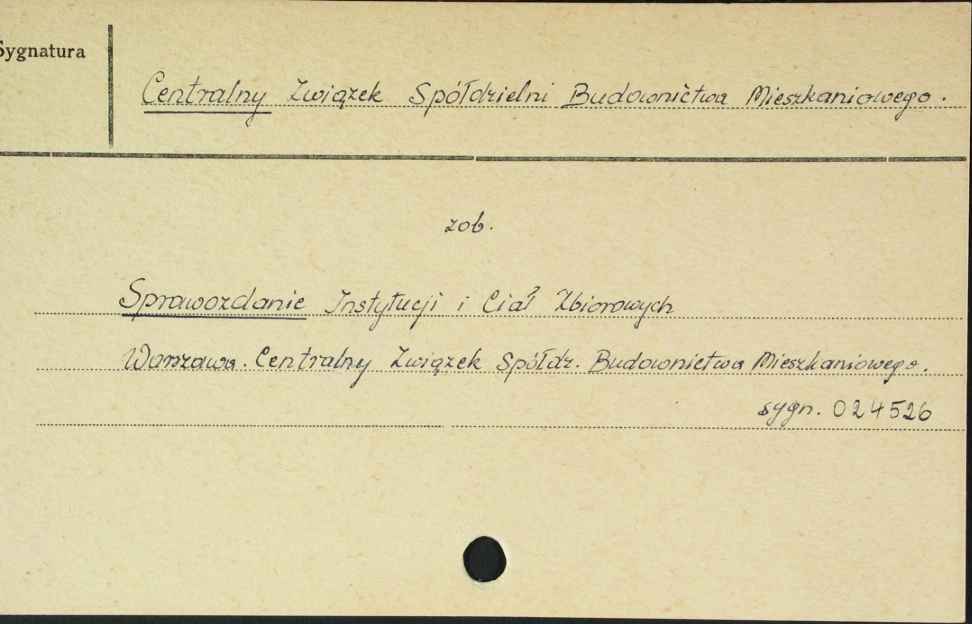 Sygnatura
Centralny Związek Spółdzielni Budownictwa Mieszkaniowego.
zob.
Sprawozdanie Instytucji i Ciał Zbiorowych
Warszawa. Centralny Związek Spółdz. Budownictwa Mieszkaniowego.
sygn. 024526